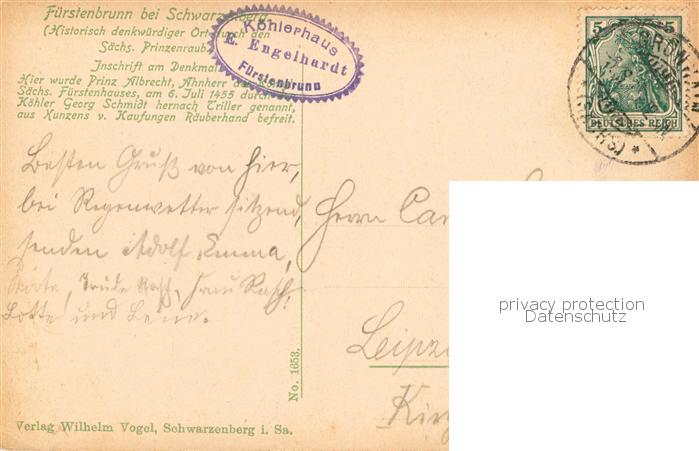 Fürstenbrunn bei Schwarzenberg
(Historisch denkwürdiger Ort durch den
Sächs. Prinzenraub
Inschrift am Denkmal
Hier wurde Prinz Albrecht, Ahnherr des
Sächs. Fürstenhauses, am 6. Juli 1455 durch
Köhler Georg Schmidt hernach Triller genannt,
aus Kunzens v. Kaufungen Räuberhand befreit.
Köhlerhaus
E. Engelhardt
Fürstenbrunn
5 5
DEUTSCHES REICH
Besten Gruß von hier,
bei Regenwetter sitzend,
senden Adolf, Emma,
Trude Frau
Lotte und Lene.
Herrn
Leipz
No. 1653.
Verlag Wilhelm Vogel, Schwarzenberg i. Sa.
privacy protection
Datenschutz